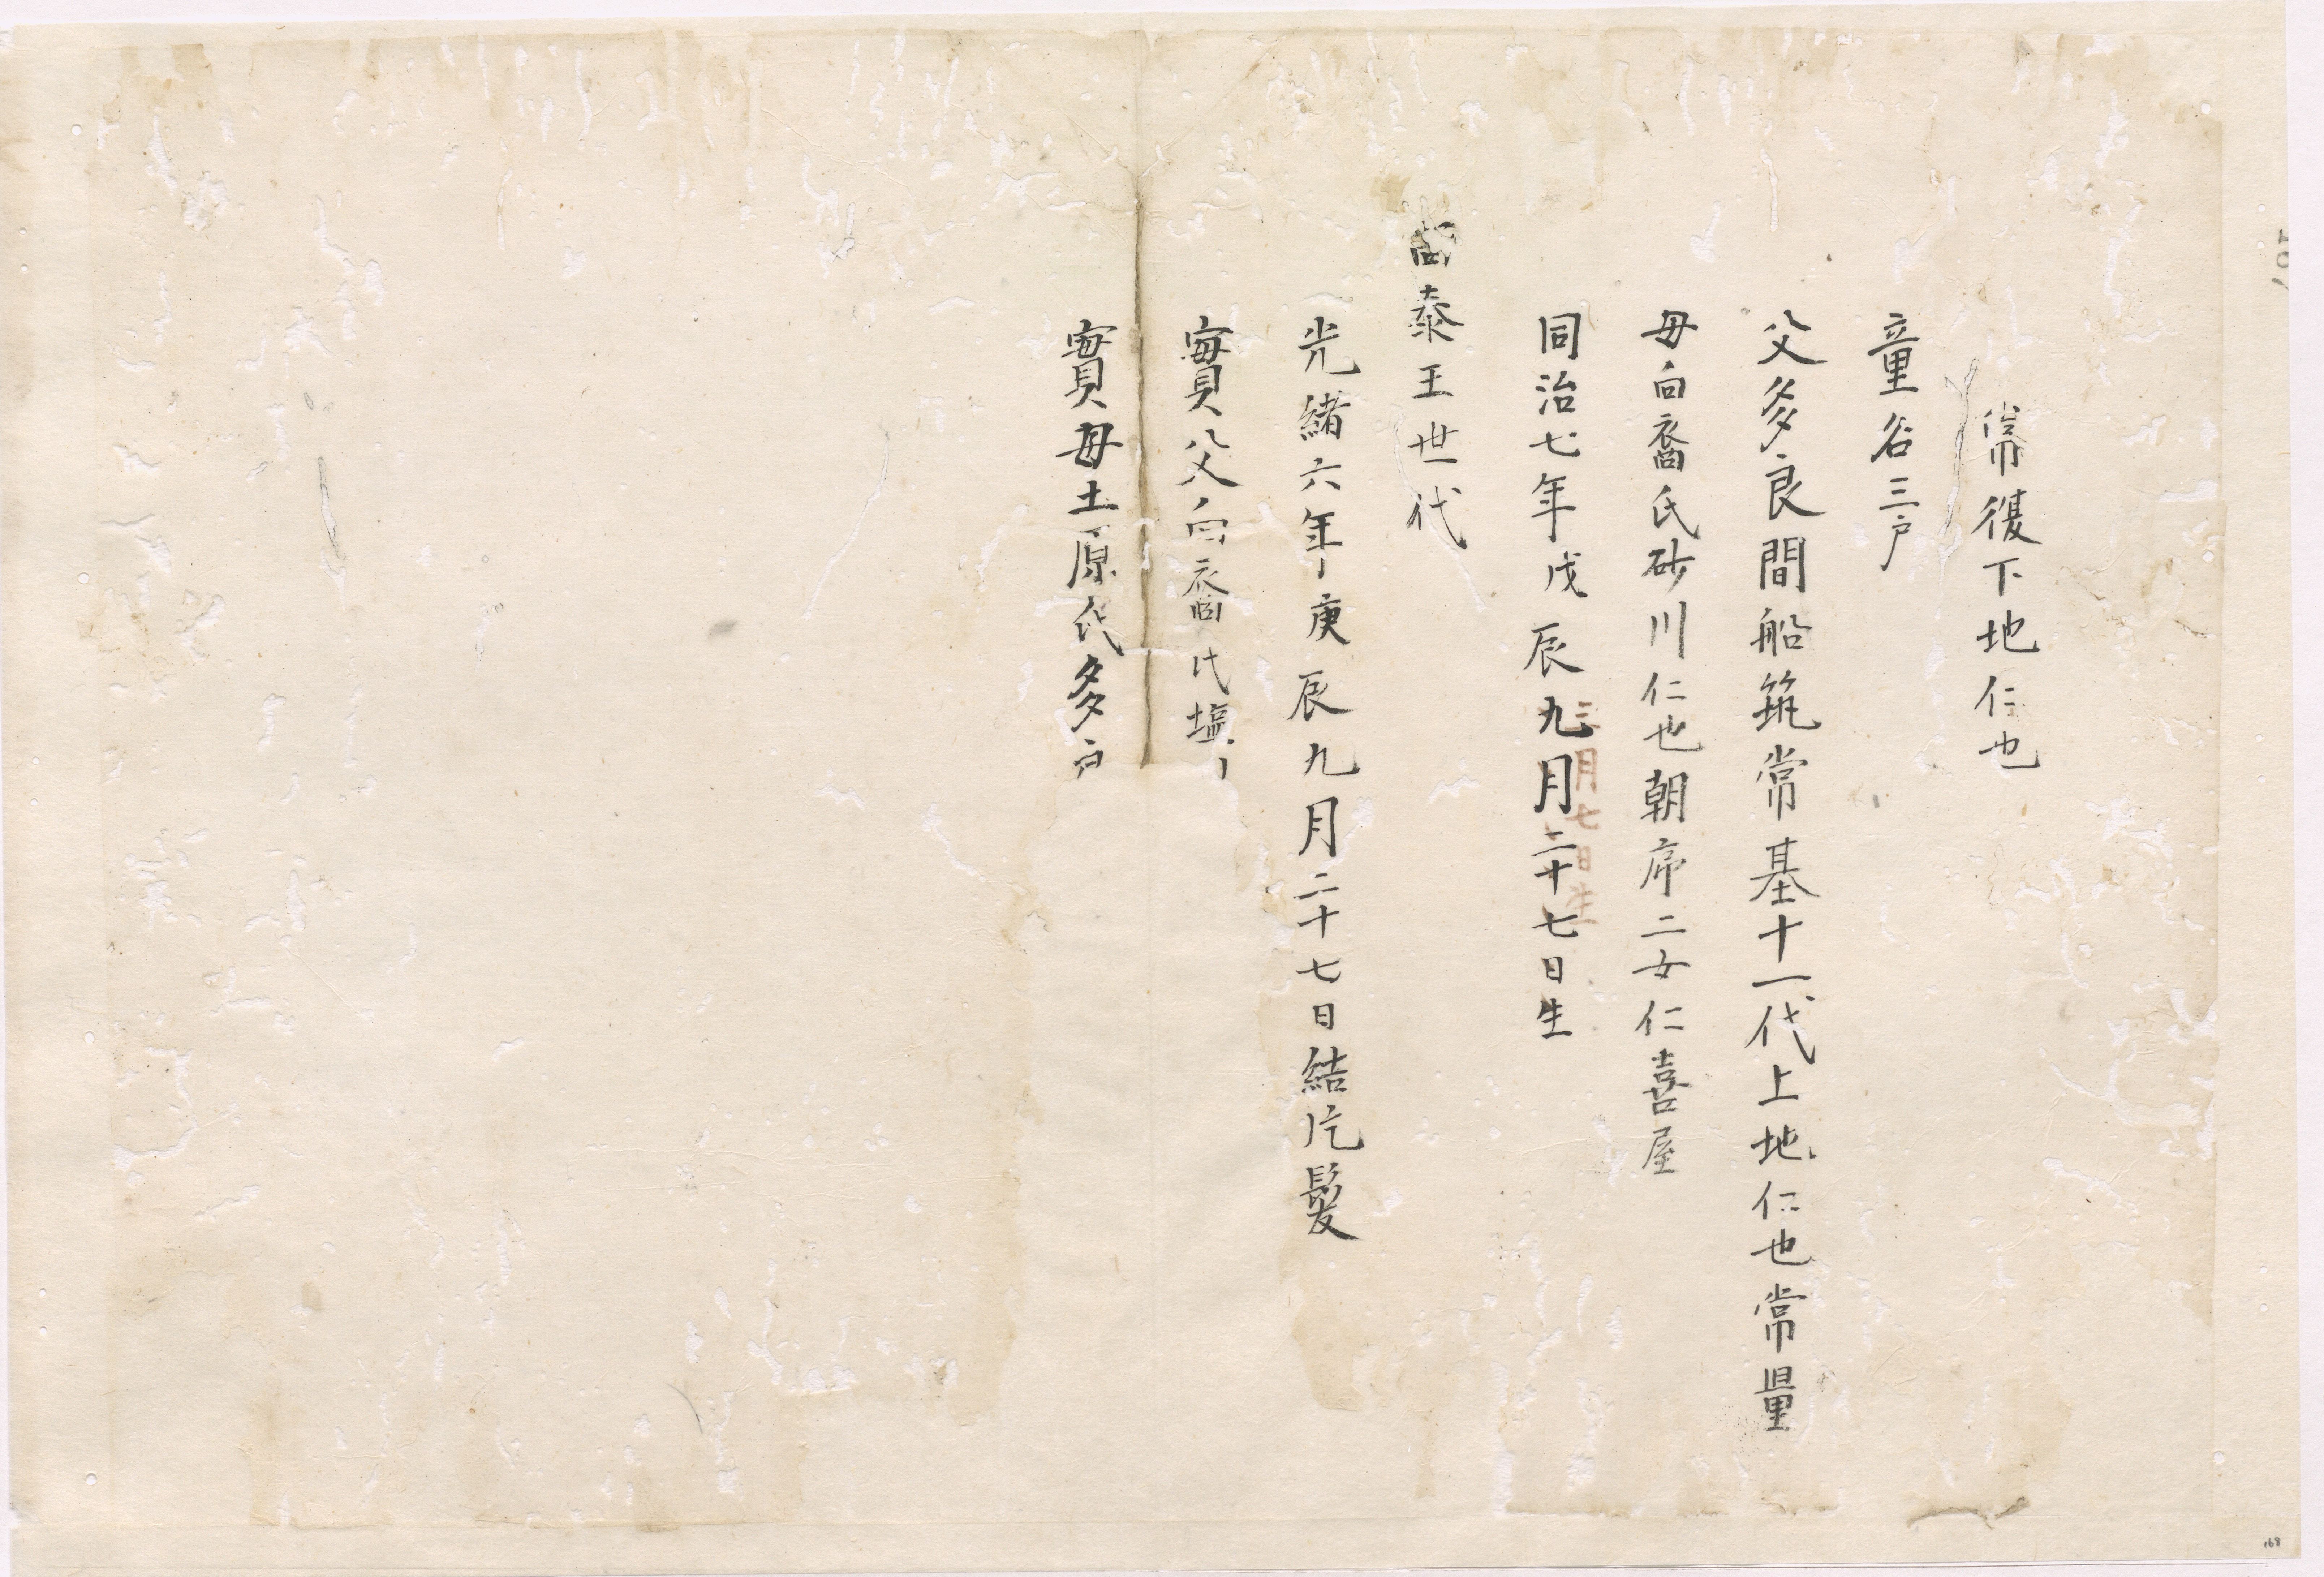 常復下地仁也
童名三戸
父多良間船筑常基十一代上地仁也常量
母向裔氏砂川仁也朝席二女仁喜屋
同治七年戊辰九月二十七日生
三月七日生
尚泰王世代
光緒六年庚辰九月二十七日結片髮
實父向裔氏塩
實母土原氏多戸
168